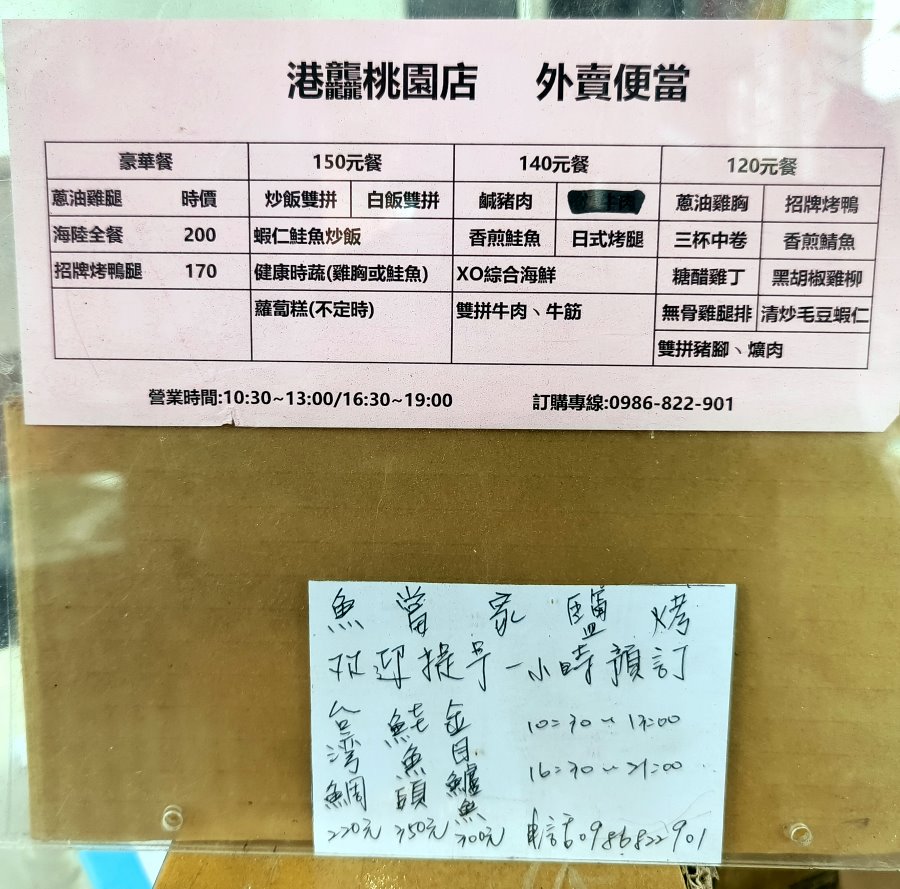 港龘桃園店 外賣便當
豪華餐 150元餐 140元餐 120元餐
蔥油雞腿 時價 炒飯雙拼 白飯雙拼 鹹豬肉 蔥油雞胸 招牌烤鴨
海陸全餐 200 蝦仁鮭魚炒飯 香煎鮭魚 日式烤腿 三杯中卷 香煎鯖魚
招牌烤鴨腿 170 健康時蔬(雞胸或鮭魚) XO綜合海鮮 糖醋雞丁 黑胡椒雞柳
蘿蔔糕(不定時) 雙拼牛肉、牛筋 無骨雞腿排 清炒毛豆蝦仁
雙拼豬腳、爌肉
營業時間:10:30~13:00/16:30~19:00 訂購專線:0986-822-901
魚當家鹽烤
欢迎提早一小時預訂
台灣鯛 220元
鮭魚頭 350元
金目鱸魚 300元
10:30~13:00
16:30~21:00
電話0986822901